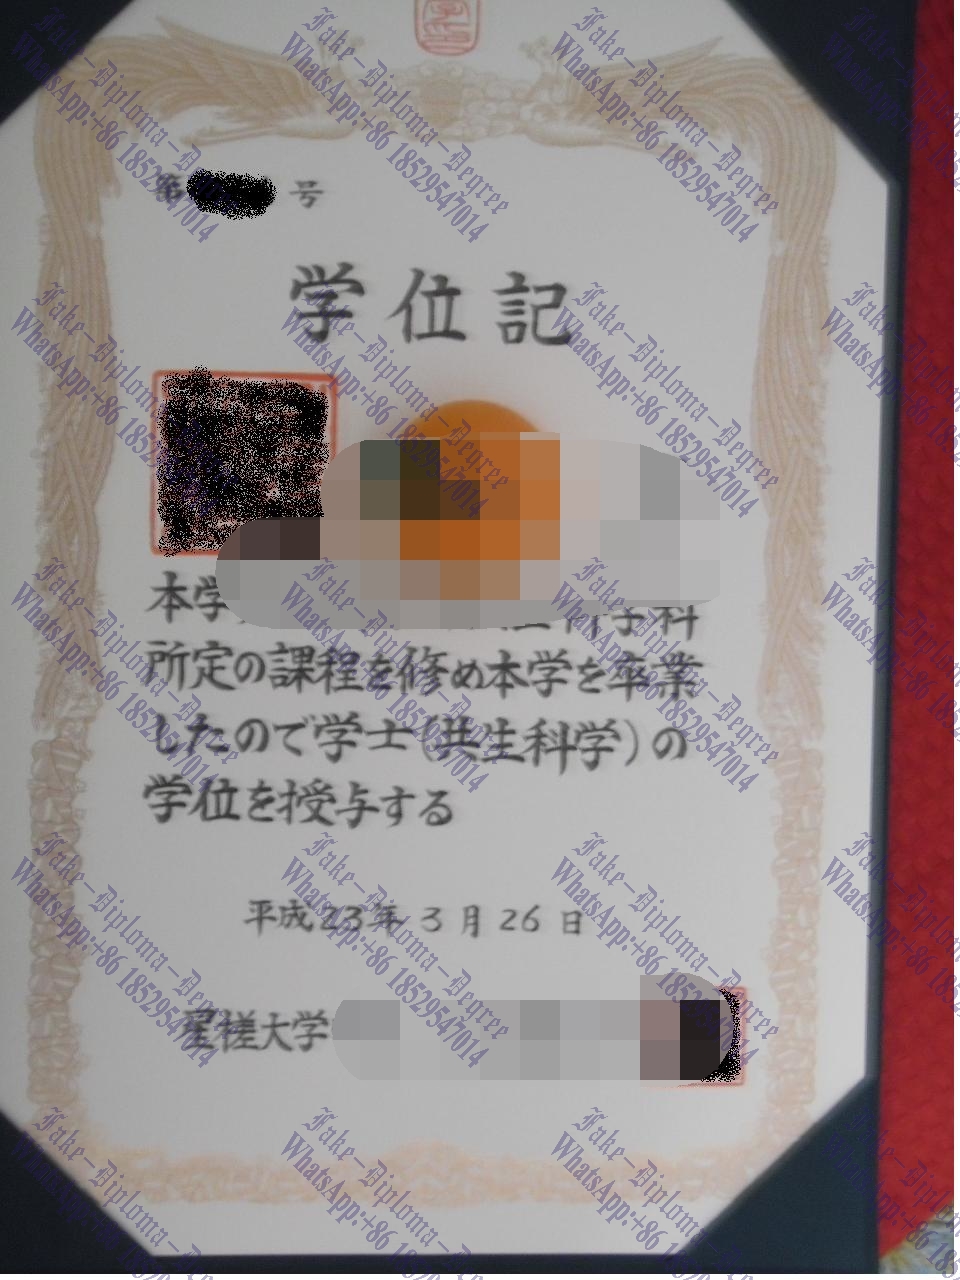 第 号
学位記
本学
科学科
所定の課程を修め本学を卒業
したので学士(共生科学)の
学位を授与する
平成23年3月26日
星槎大学
Fake-Diploma-Degree
WhatsApp:+86 18529547014